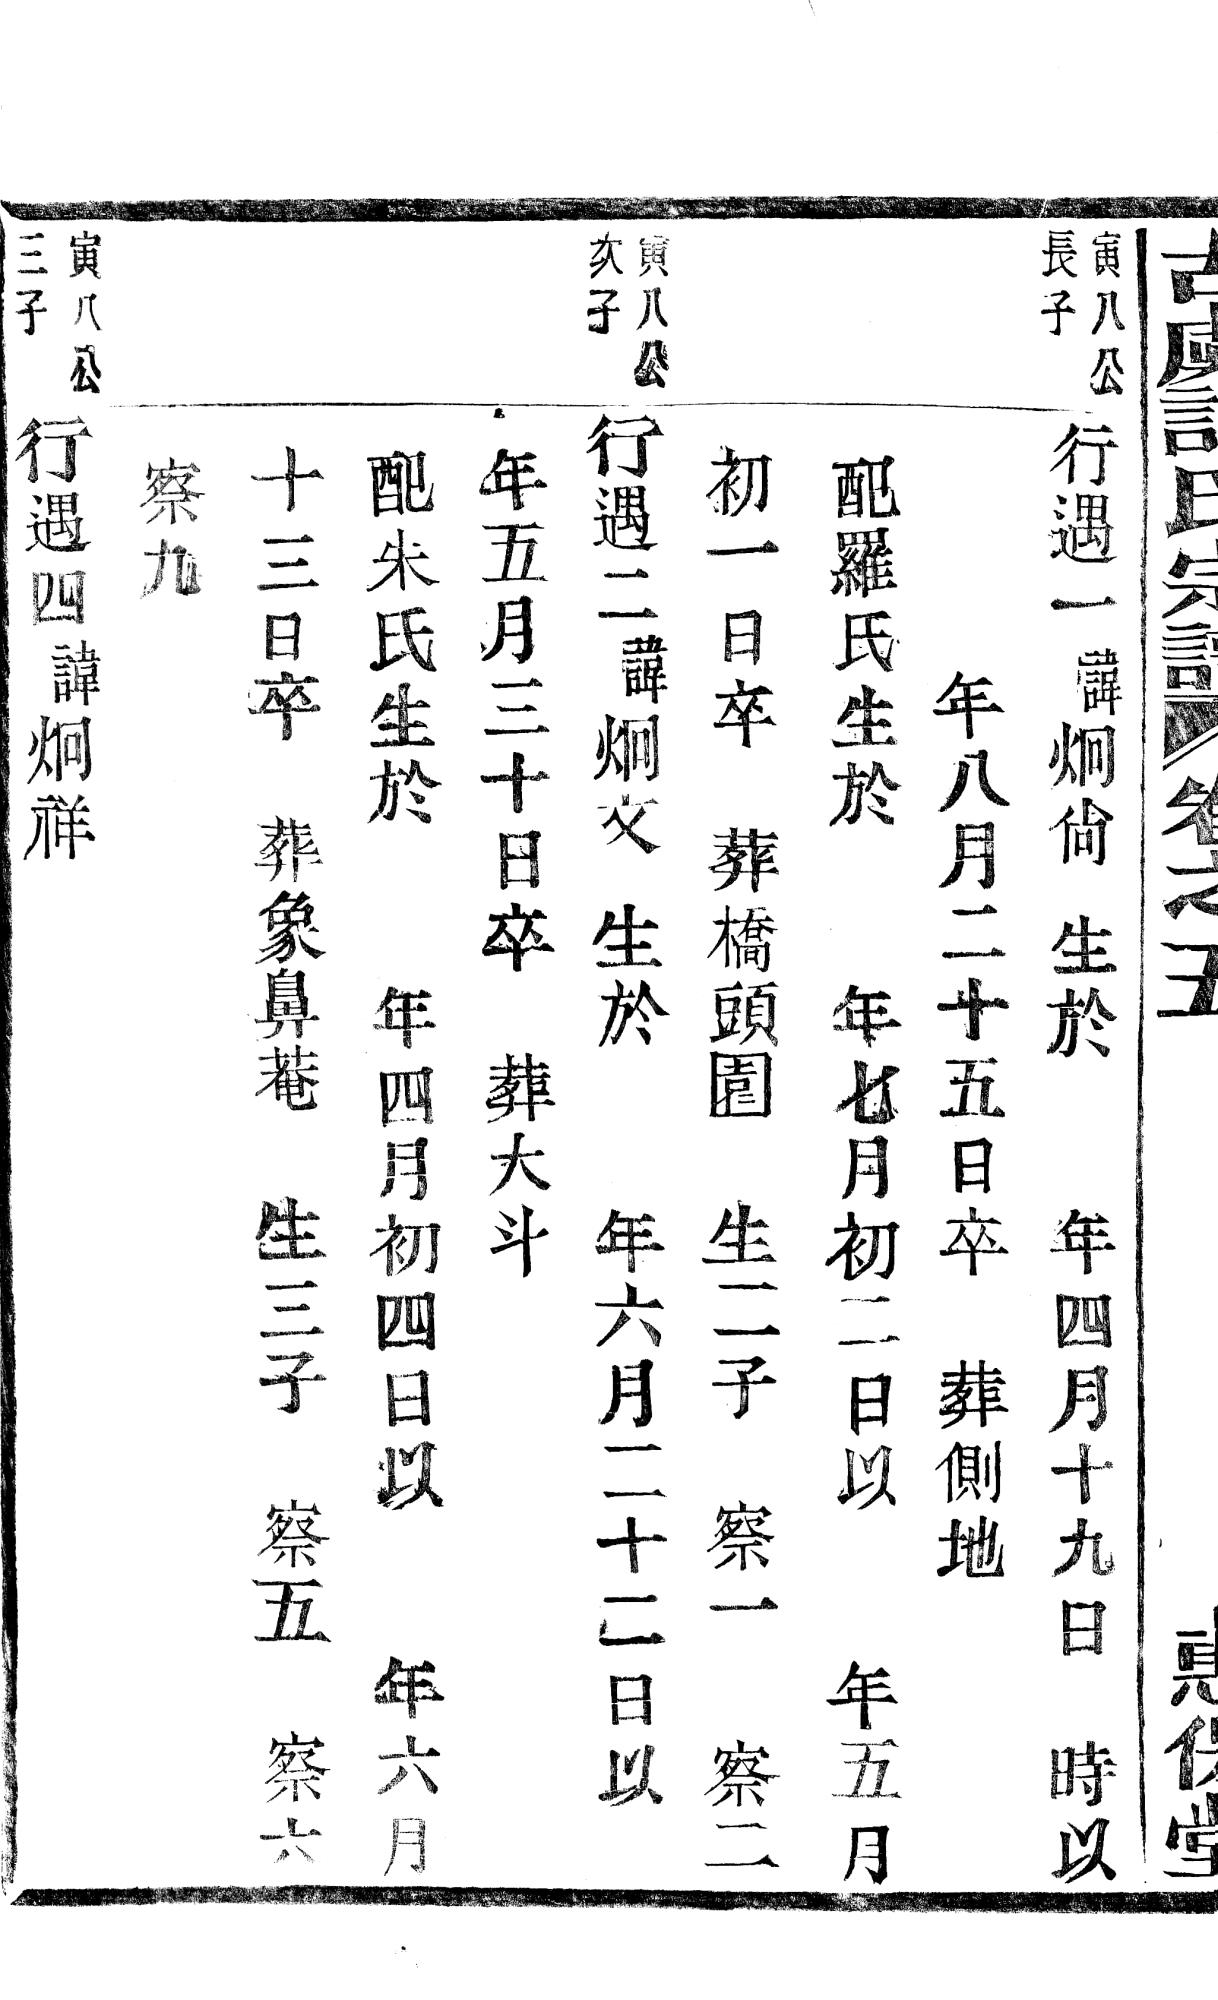 古虞許氏宗譜 卷之五 惠保堂
寅八公
長子
行遇一 諱烱尙 生於 年四月十九日 時以
年八月二十五日卒 葬側地
配羅氏生於 年七月初二日以 年五月
初一日卒 葬橋頭園 生二子 察一 察二
寅八公
次子
行遇二 諱烱文 生於 年六月二十二日以
年五月三十日卒 葬大斗
配朱氏生於 年四月初四日以 年六月
十三日卒 葬象鼻菴 生三子 察五 察六
察九
寅八公
三子
行遇四 諱烱祥